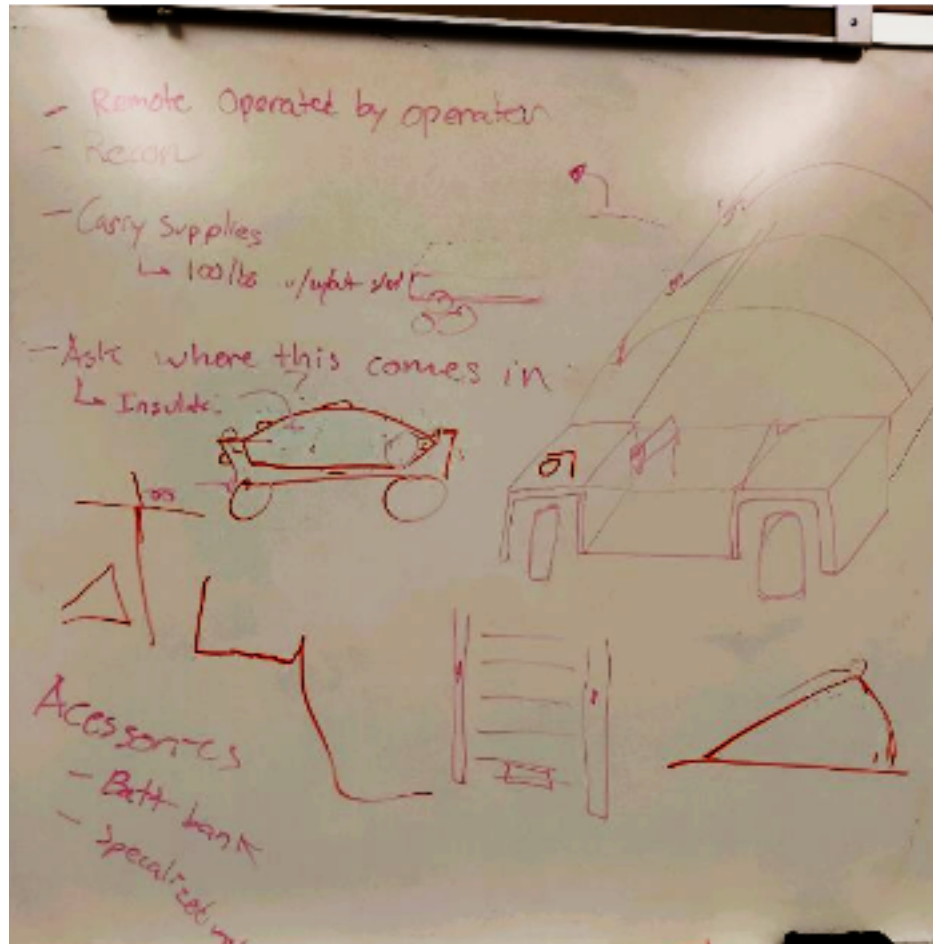 - Remote Operated by operator
- Recon
- Carry Supplies
↳ 100 lbs
- Ask where this comes in
Acessories
- Batt bank